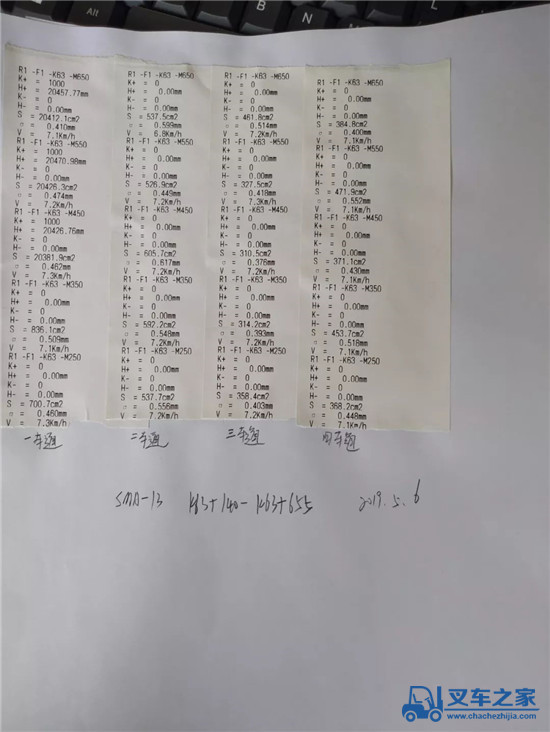 Alt
R1 -F1 -K63 -M650
K+ = 1000
H+ = 20457.77mm
K- = 0
H- = 0.00mm
S = 20412.1cm2
σ = 0.410mm
V = 7.1Km/h
R1 -F1 -K63 -M550
K+ = 1000
H+ = 20470.98mm
K- = 0
H- = 0.00mm
S = 20426.3cm2
σ = 0.474mm
V = 7.2Km/h
R1 -F1 -K63 -M450
K+ = 1000
H+ = 20426.76mm
K- = 0
H- = 0.00mm
S = 20381.9cm2
σ = 0.462mm
V = 7.3Km/h
R1 -F1 -K63 -M350
K+ = 0
H+ = 0.00mm
K- = 0
H- = 0.00mm
S = 836.1cm2
σ = 0.509mm
V = 7.1Km/h
R1 -F1 -K63 -M250
K+ = 0
H+ = 0.00mm
K- = 0
H- = 0.00mm
S = 700.7cm2
σ = 0.460mm
V = 7.3Km/h
一车道
R1 -F1 -K63 -M650
K+ = 0
H+ = 0.00mm
K- = 0
H- = 0.00mm
S = 537.5cm2
σ = 0.599mm
V = 6.8Km/h
R1 -F1 -K63 -M550
K+ = 0
H+ = 0.00mm
K- = 0
H- = 0.00mm
S = 526.9cm2
σ = 0.449mm
V = 7.2Km/h
R1 -F1 -K63 -M450
K+ = 0
H+ = 0.00mm
K- = 0
H- = 0.00mm
S = 605.7cm2
σ = 0.617mm
V = 7.2Km/h
R1 -F1 -K63 -M350
K+ = 0
H+ = 0.00mm
K- = 0
H- = 0.00mm
S = 592.2cm2
σ = 0.548mm
V = 7.2Km/h
R1 -F1 -K63 -M250
K+ = 0
H+ = 0.00mm
K- = 0
H- = 0.00mm
S = 537.7cm2
σ = 0.556mm
V = 7.2Km/h
二车道
R1 -F1 -K63 -M650
K+ = 0
H+ = 0.00mm
K- = 0
H- = 0.00mm
S = 461.8cm2
σ = 0.514mm
V = 7.2Km/h
R1 -F1 -K63 -M550
K+ = 0
H+ = 0.00mm
K- = 0
H- = 0.00mm
S = 327.5cm2
σ = 0.418mm
V = 7.3Km/h
R1 -F1 -K63 -M450
K+ = 0
H+ = 0.00mm
K- = 0
H- = 0.00mm
S = 310.5cm2
σ = 0.376mm
V = 7.2Km/h
R1 -F1 -K63 -M350
K+ = 0
H+ = 0.00mm
K- = 0
H- = 0.00mm
S = 314.2cm2
σ = 0.393mm
V = 7.2Km/h
R1 -F1 -K63 -M250
K+ = 0
H+ = 0.00mm
K- = 0
H- = 0.00mm
S = 358.4cm2
σ = 0.403mm
V = 7.2Km/h
三车道
R1 -F1 -K63 -M650
K+ = 0
H+ = 0.00mm
K- = 0
H- = 0.00mm
S = 384.8cm2
σ = 0.400mm
V = 7.1Km/h
R1 -F1 -K63 -M550
K+ = 0
H+ = 0.00mm
K- = 0
H- = 0.00mm
S = 471.9cm2
σ = 0.552mm
V = 7.1Km/h
R1 -F1 -K63 -M450
K+ = 0
H+ = 0.00mm
K- = 0
H- = 0.00mm
S = 371.1cm2
σ = 0.430mm
V = 7.1Km/h
R1 -F1 -K63 -M350
K+ = 0
H+ = 0.00mm
K- = 0
H- = 0.00mm
S = 453.7cm2
σ = 0.518mm
V = 7.1Km/h
R1 -F1 -K63 -M250
K+ = 0
H+ = 0.00mm
K- = 0
H- = 0.00mm
S = 368.2cm2
σ = 0.448mm
V = 7.1Km/h
四车道
SMA-13 K63+140-K63+655 2019.5.6
叉车之家
www.chachezhijia.com